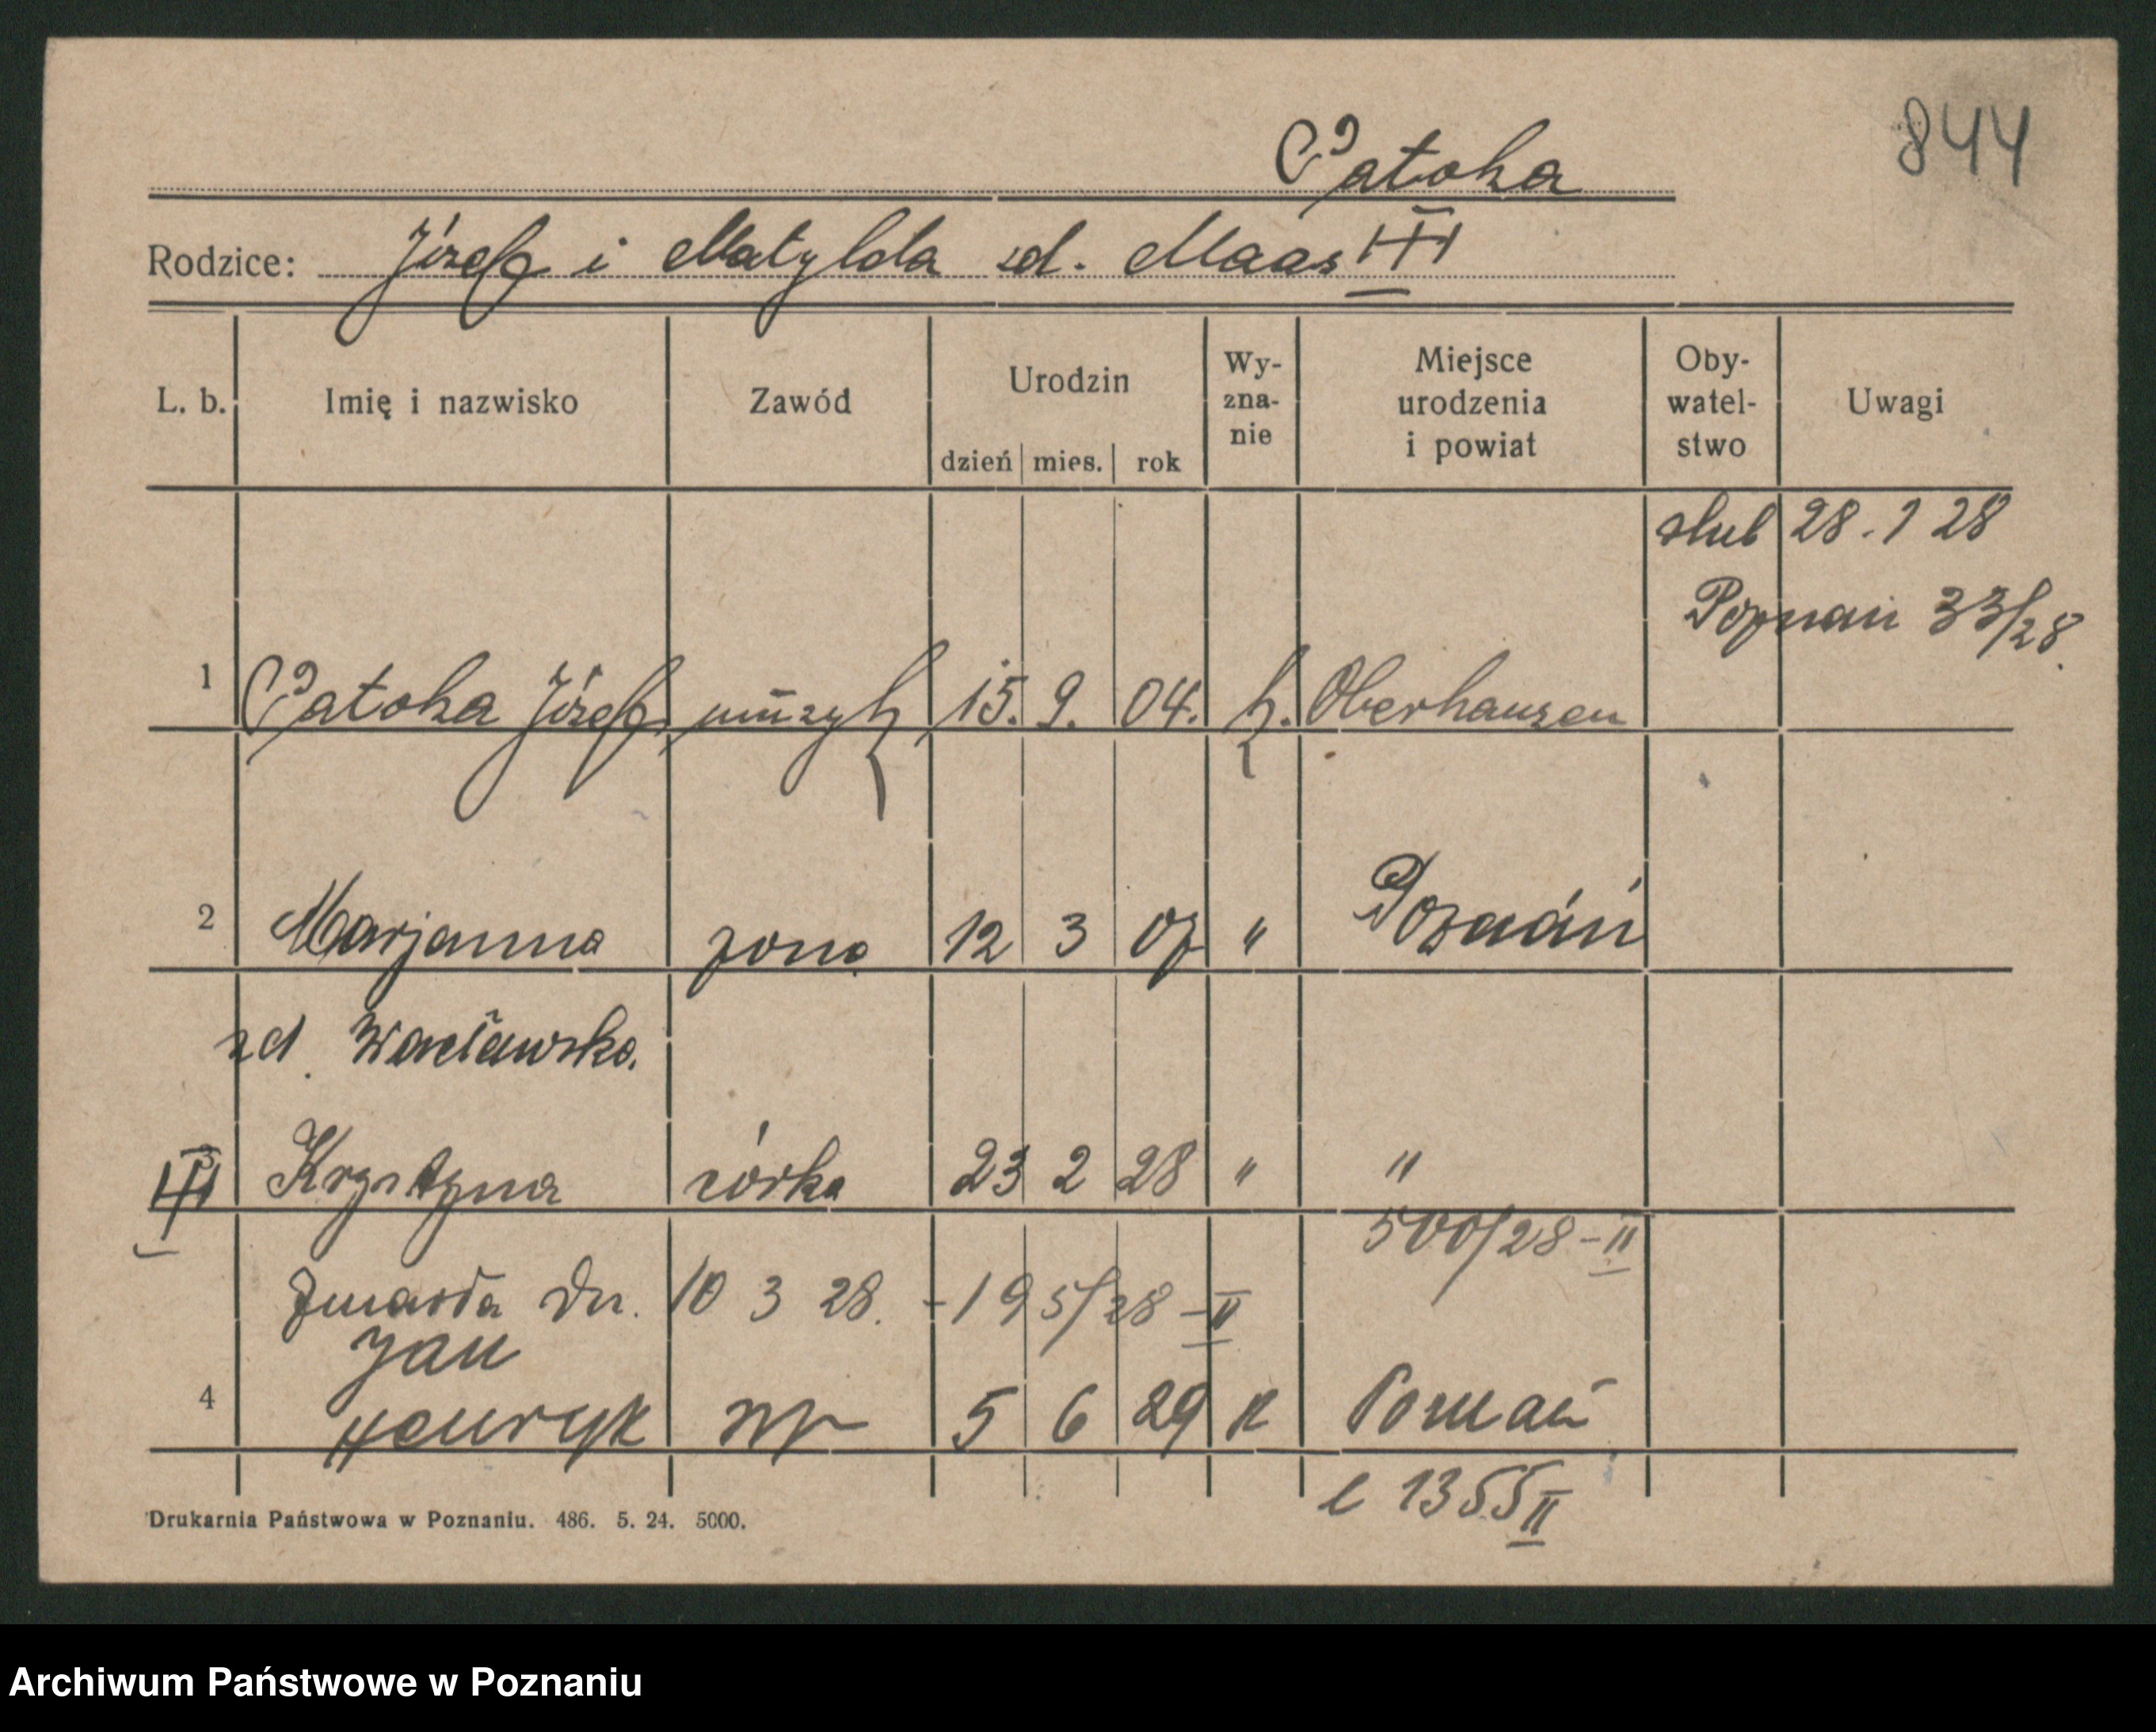 844
Patoka
Rodzice: Józef i Matylda zd. Maas
L. b. Imię i nazwisko Zawód Urodzin dzień mies. rok Wy-zna-nie Miejsce urodzenia i powiat Oby-watel-stwo Uwagi
ślub 28.1 28
Poznań 33/28.
1 Patoka Józef, muzyk, 15. 9. 04. k. Oberhausen
2 Marjanna żona 12 3 07 " Poznań
zd. Wacławska.
3 Krystyna córka 23 2 28 " "
500/28-II
Zmarła dn. 10 3 28. -195/28-II
Jan
4 Henryk 5 6 29 k Poznań
1355 II
Drukarnia Państwowa w Poznaniu. 486. 5. 24. 5000.
Archiwum Państwowe w Poznaniu